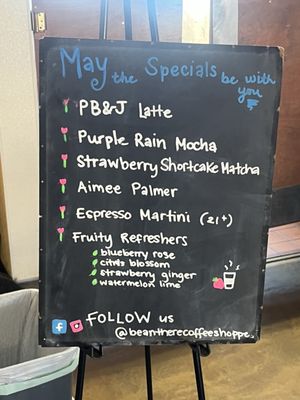 May the Specials be with
you
PB&J Latte
Purple Rain Mocha
Strawberry Shortcake Matcha
Aimee Palmer
Espresso Martini (21+)
Fruity Refreshers
blueberry rose
citrus blossom
strawberry ginger
watermelon lime
FOLLOW us
@beantherecoffeeshoppe